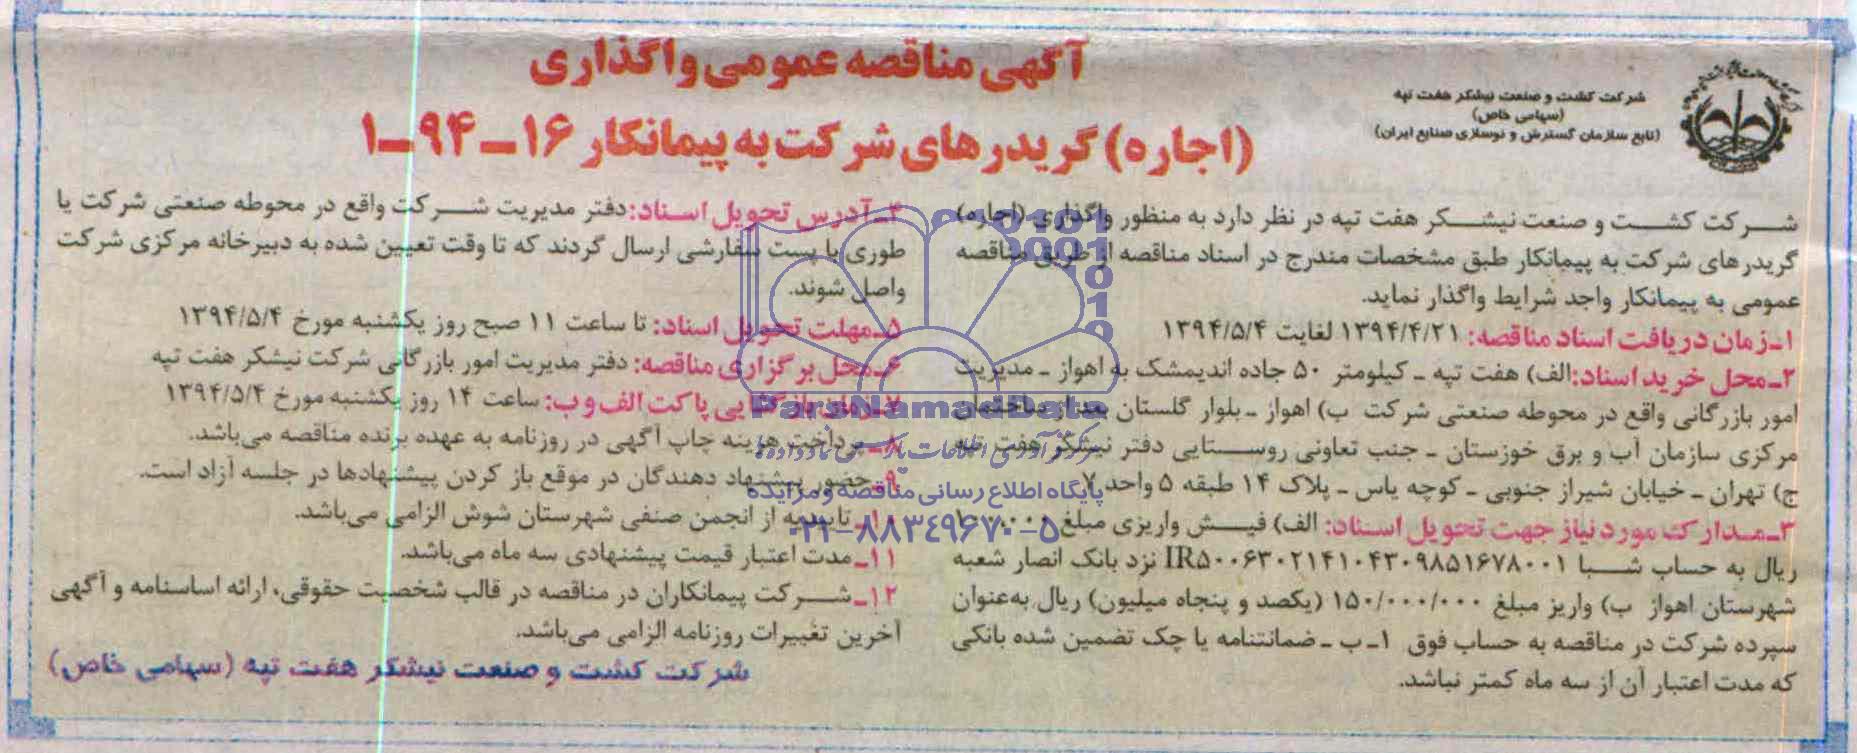 آگهی مناقصه عمومی واگذاری
(اجاره) گریدرهای شرکت به پیمانکار ۱۶-۹۴-۱
شرکت کشت و صنعت نیشکر هفت تپه
(سهامی خاص)
(تابع سازمان گسترش و نوسازی صنایع ایران)
شرکت کشت و صنعت نیشکر هفت تپه در نظر دارد به منظور واگذاری (اجاره)
گریدرهای شرکت به پیمانکار طبق مشخصات مندرج در اسناد مناقصه از طریق مناقصه
عمومی به پیمانکار واجد شرایط واگذار نماید.
۱-زمان دریافت اسناد مناقصه: ۱۳۹۴/۴/۲۱ لغایت ۱۳۹۴/۵/۴
۲-محل خرید اسناد:الف) هفت تپه - کیلومتر ۵۰ جاده اندیمشک به اهواز - مدیریت
امور بازرگانی واقع در محوطه صنعتی شرکت ب) اهواز - بلوار گلستان بعد از ساختمان
مرکزی سازمان آب و برق خوزستان - جنب تعاونی روستایی دفتر نیشکر هفت تپه
ج) تهران - خیابان شیراز جنوبی - کوچه یاس - پلاک ۱۴ طبقه ۵ واحد ۷
۳-مدارک مورد نیاز جهت تحویل اسناد: الف) فیش واریزی مبلغ
ریال به حساب شبا IR۵۰۰۶۳۰۲۱۴۱۰۴۳۰۹۸۵۱۶۷۸۰۰۱ نزد بانک انصار شعبه
شهرستان اهواز ب) واریز مبلغ ۱۵۰/۰۰۰/۰۰۰ (یکصد و پنجاه میلیون) ریال به‌عنوان
سپرده شرکت در مناقصه به حساب فوق ۱-ب - ضمانتنامه یا چک تضمین شده بانکی
که مدت اعتبار آن از سه ماه کمتر نباشد.
۴-آدرس تحویل اسناد:دفتر مدیریت شرکت واقع در محوطه صنعتی شرکت یا
طوری با پست سفارشی ارسال گردند که تا وقت تعیین شده به دبیرخانه مرکزی شرکت
واصل شوند.
۵-مهلت تحویل اسناد: تا ساعت ۱۱ صبح روز یکشنبه مورخ ۱۳۹۴/۵/۴
۶-محل برگزاری مناقصه: دفتر مدیریت امور بازرگانی شرکت نیشکر هفت تپه
۷-زمان بازگشایی پاکت الف و ب: ساعت ۱۴ روز یکشنبه مورخ ۱۳۹۴/۵/۴
۸-پرداخت هزینه چاپ آگهی در روزنامه به عهده برنده مناقصه می‌باشد.
۹-حضور پیشنهاد دهندگان در موقع باز کردن پیشنهادها در جلسه آزاد است.
۱۰-تاییدیه از انجمن صنفی شهرستان شوش الزامی می‌باشد.
۱۱-مدت اعتبار قیمت پیشنهادی سه ماه می‌باشد.
۱۲-شرکت پیمانکاران در مناقصه در قالب شخصیت حقوقی، ارائه اساسنامه و آگهی
آخرین تغییرات روزنامه الزامی می‌باشد.
شرکت کشت و صنعت نیشکر هفت تپه (سهامی خاص)
ParsNamadData
پایگاه اطلاع رسانی مناقصه و مزایده
۰۲۱-۸۸۳۴۹۶۷۰-۵